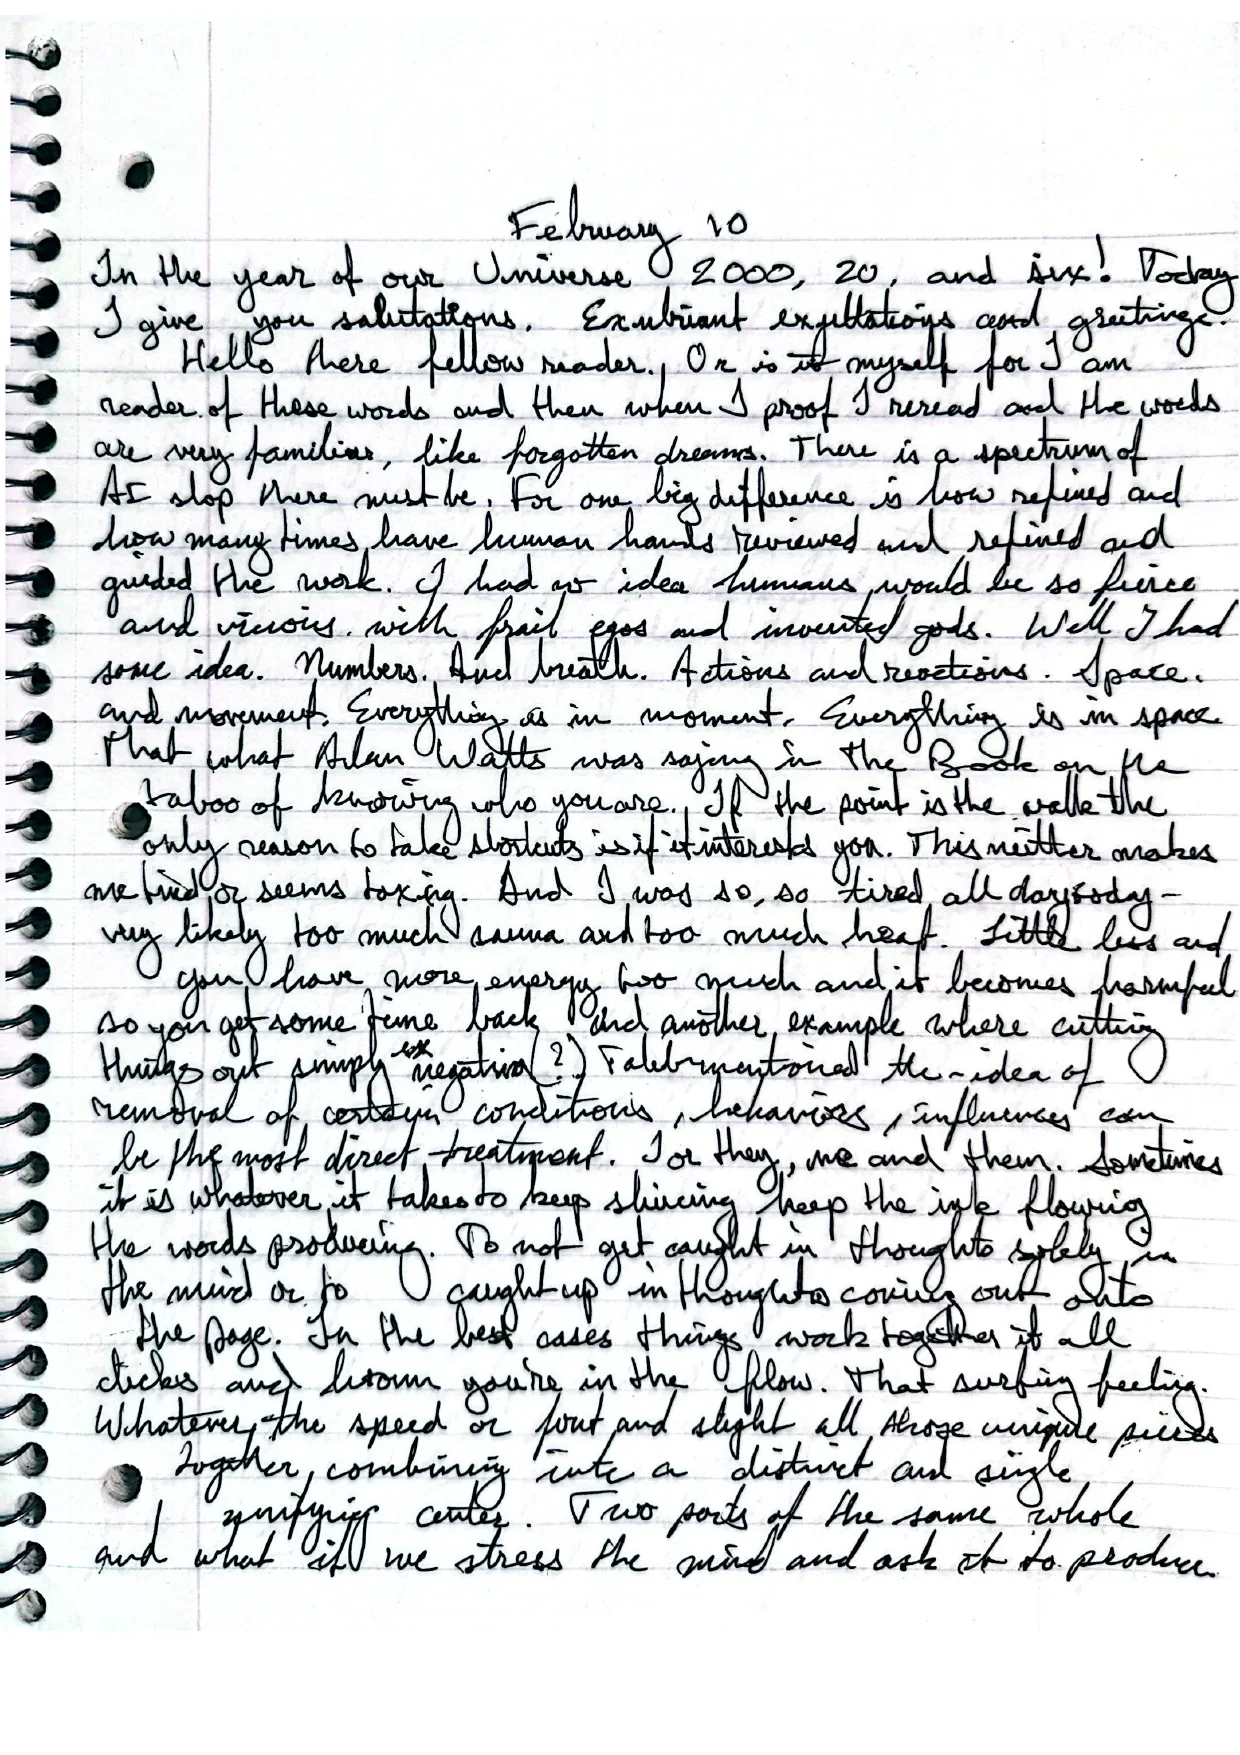 February 10
In the year of our Universe 2000, 20, and six! Today
I give you salutations. Exubriant expettations and greetings.
Hello there fellow reader. Or is it myself for I am
reader of these words and then when I proof I reread and the words
are very familiar, like forgotten dreams. There is a spectrum of
AI slop there must be. For one big difference is how refined and
how many times have human hands reviewed and refined and
guided the work. I had no idea humans would be so fierce
and vicious with frail egos and invented gods. Well I had
some idea. Numbers. And breath. Actions and reactions. Space.
and movement. Everything is in moment. Everything is in space
That what Alan Watts was saying in the Book on the
taboo of knowing who you are. If the point is the walk the
only reason to take shortcuts is if it interests you. This neither makes
me tired or seems taxing. And I was so, so tired all day today -
very likely too much sauna and too much heat. Little less and
you have more energy too much and it becomes harmful
so you get some time back and another example where cutting
things out simply via negativa (?) Taleb mentioned the idea of
removal of certain conditions, behaviors, influences can
be the most direct treatment. I or they, me and them. Sometimes
it is whatever it takes to keep shining keep the ink flowing
the words producing. To not get caught in thoughts solely in
the mind or to caught up in thoughts coming out onto
the page. In the best cases things work together it all
clicks and you're in the flow. That surfing feeling.
Whatever the speed or font and slight all those unique pieces
together, combining into a distinct and single
unifying center. Two parts of the same whole
and what if we stress the mind and ask it to produce